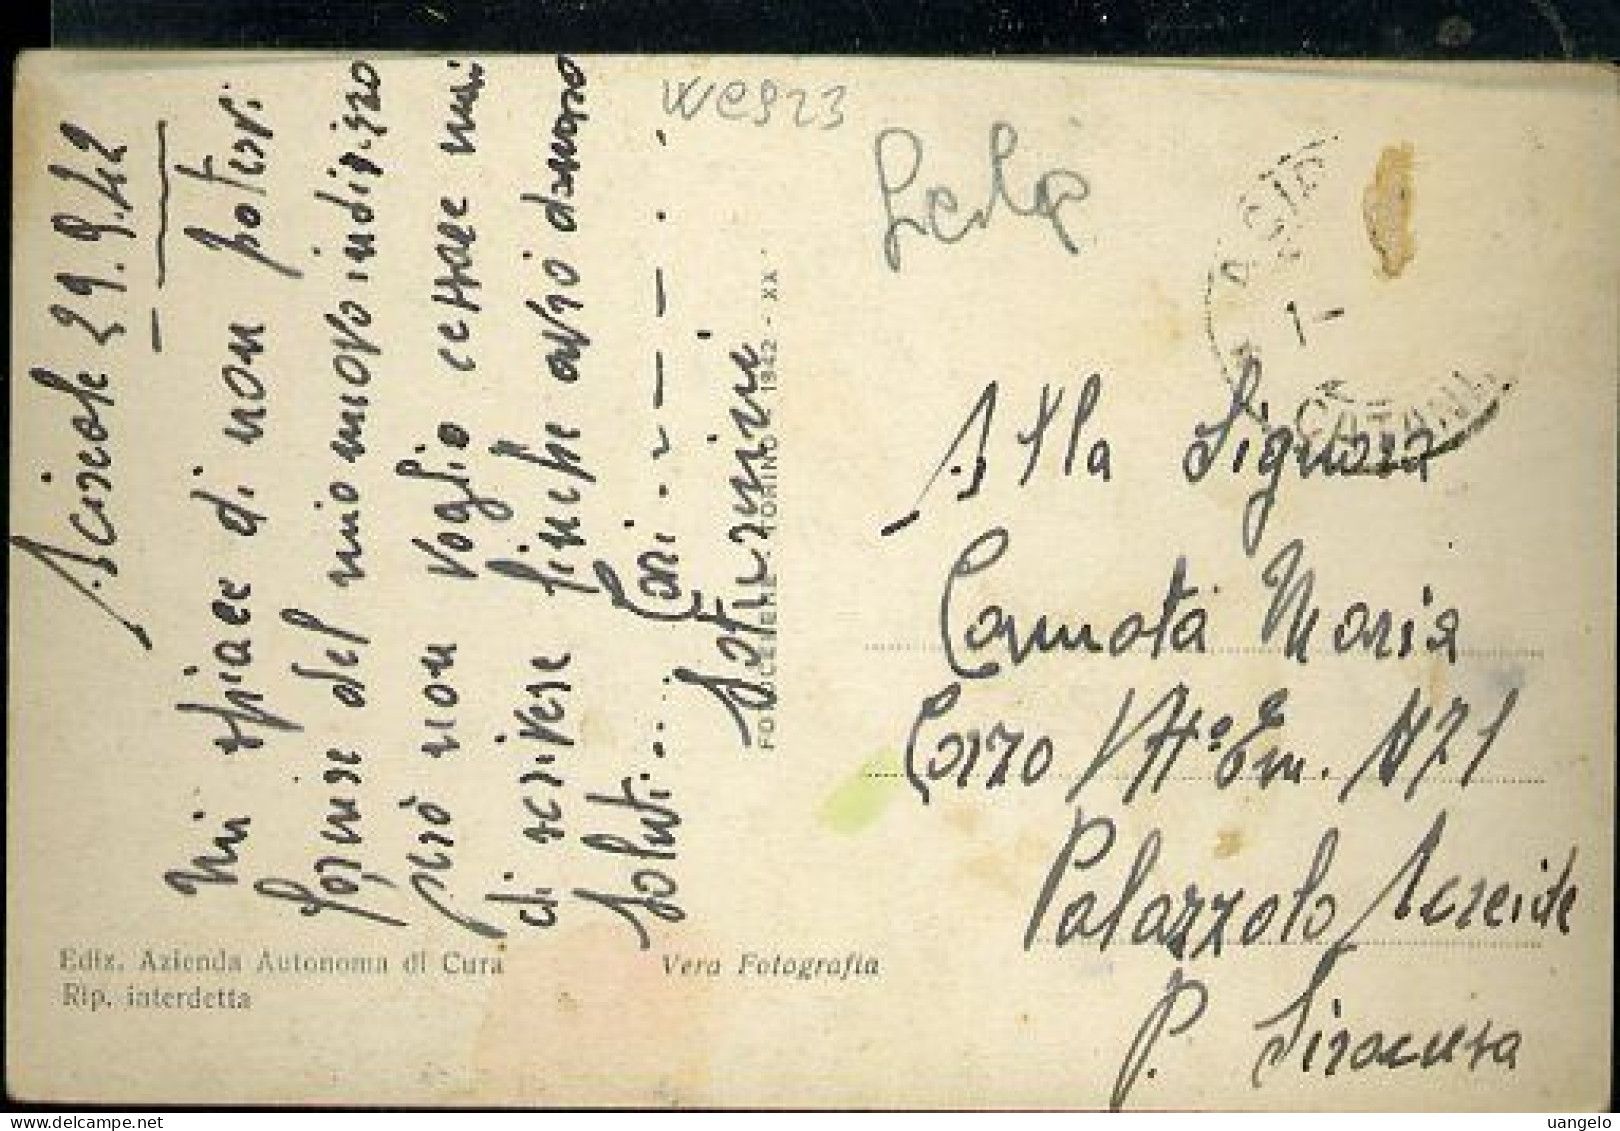 Acireale 29.9.42
Mi spiace di non potervi
fornire del mio nuovo indirizzo
però non voglio cessare mai
di scrivere finche avrò denaro
Saluti... Cari
Saturnini
FOTOCELERE TORINO 1942 - XX
WC923
ACIR
1-
CATANIA
Alla Signora
Cannota Maria
Corzo Vtt° Em. N 71
Palazzolo Acreide
P. Siracusa
Ediz. Azienda Autonoma di Cura
Rip. interdetta
Vera Fotografia
www.delcampe.net
uangelo